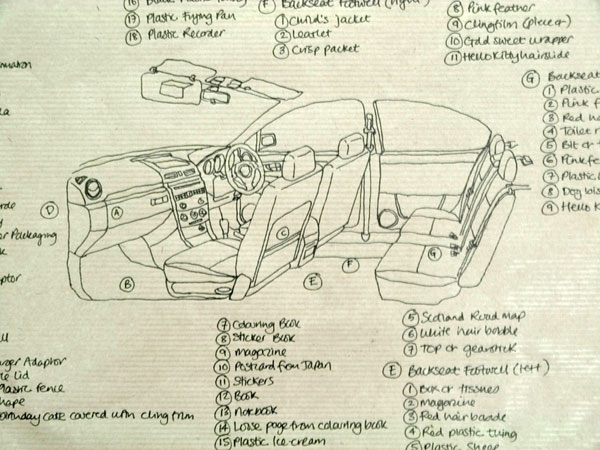 17 Plastic Frying Pan
18 Plastic Recorder
F Backseat Footwell (right)
1 Child's jacket
2 Leaflet
3 Crisp packet
8 Pink feather
9 Clingfilm (piece of)
10 Gold sweet wrapper
11 Hello Kitty hairslide
G Backseat
1 Plastic
2 Pink f
3 Red ha
4 Toilet r
5 Bit of
6 Pink fe
7 Plastic
8 Dog
9 Hello K
D
A
B
C
E
F
G
r Packaging
aptor
Adaptor
e Lid
Plastic fence
hape
birthday case covered with cling film
7 Colouring Book
8 Sticker Book
9 magazine
10 Postcard from Japan
11 Stickers
12 Book
13 Notebook
14 Loose page from colouring book
15 Plastic Ice-cream
5 Scotland Road Map
6 White hair bobble
7 Top of gearstick
E Backseat Footwell (left)
1 Box of tissues
2 Magazine
3 Red hair bobble
4 Red plastic tubing
5 Plastic Sheep